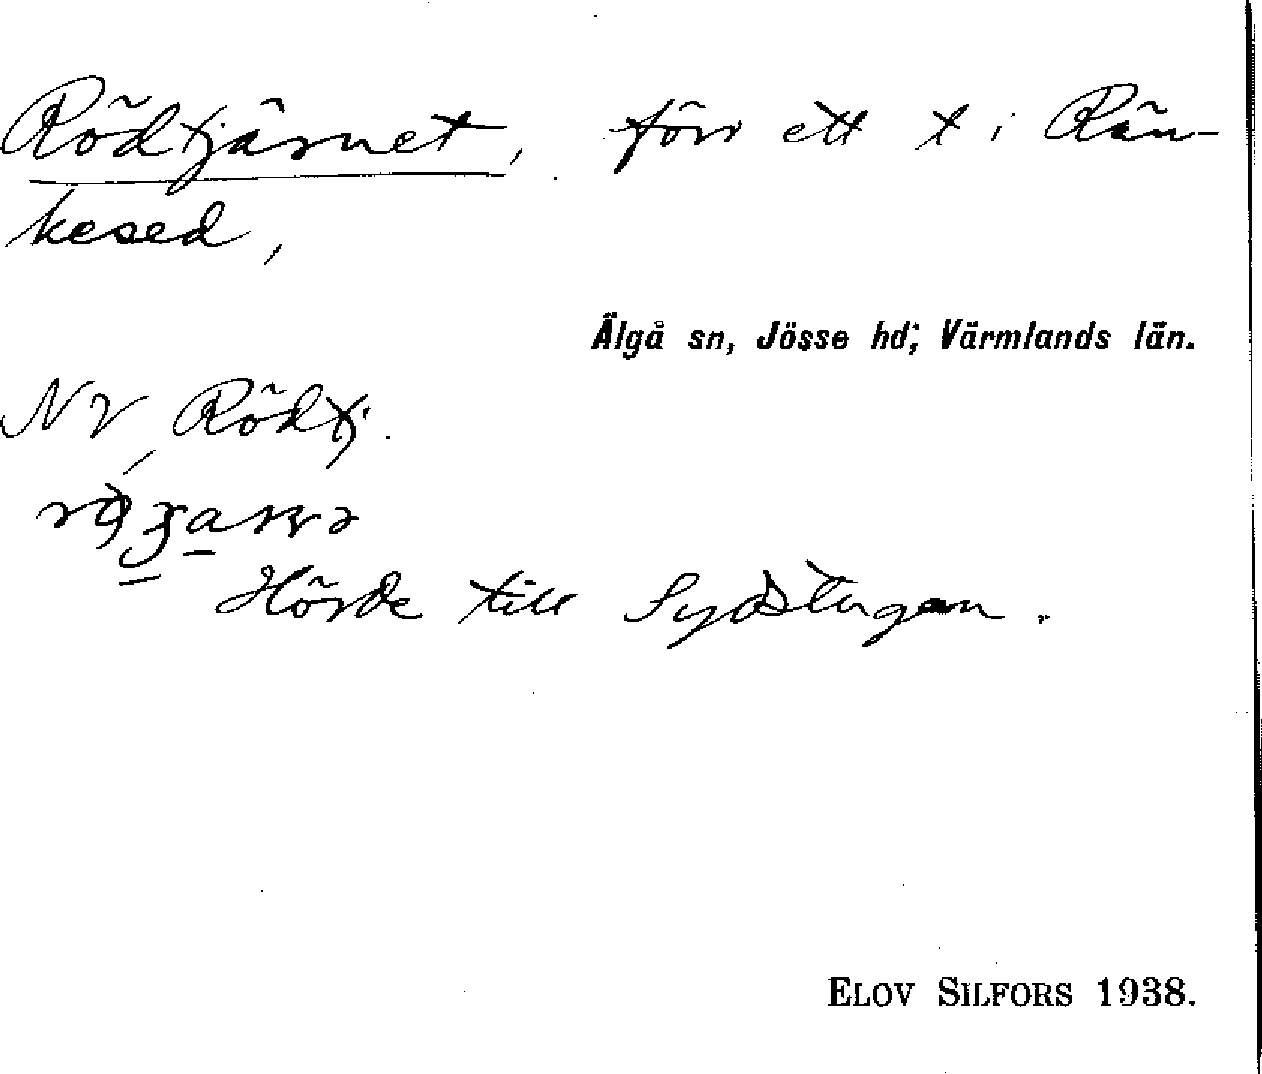 Rödtjärnet, förr ett t i Rän-
kesed,
Älgå sn, Jösse hd; Värmlands län.
NV Rödtj.
Hörde till Sydstugan.
ELOV SILFORS 1938.